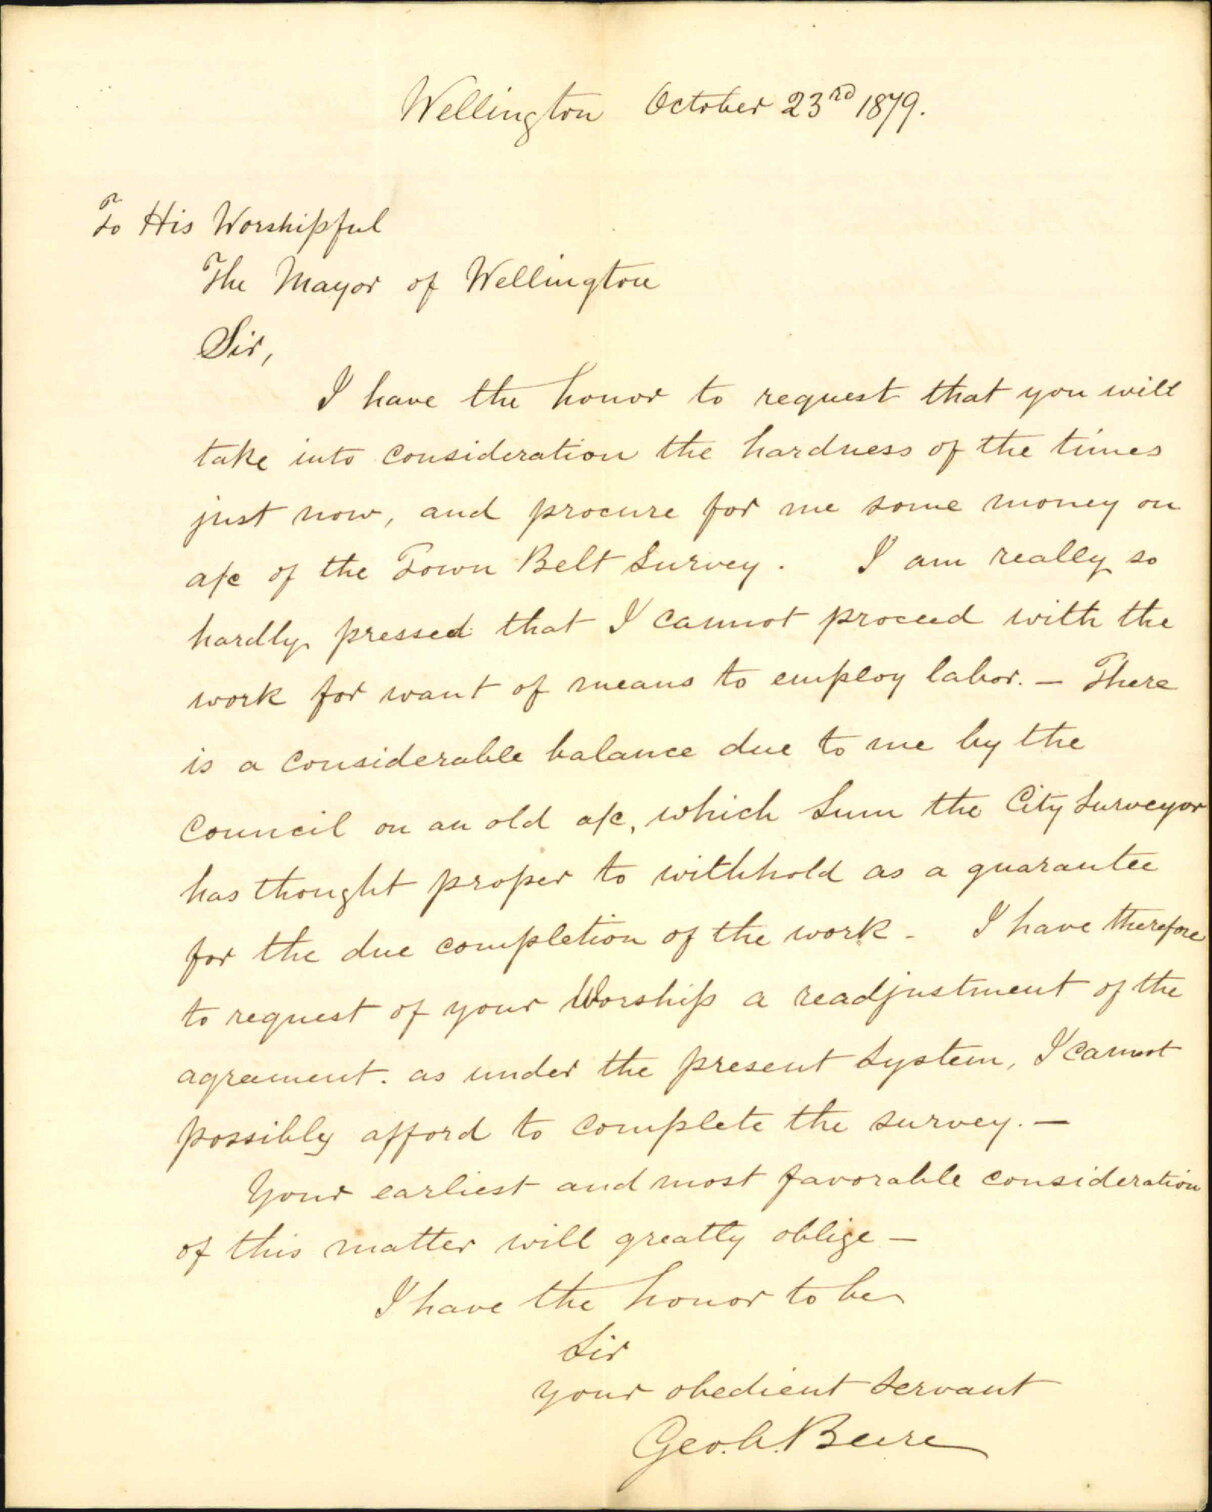 Wellington October 23rd 1879.
To His Worshipful
The Mayor of Wellington
Sir,
I have the honor to request that you will
take into consideration the hardness of the times
just now, and procure for me some money on
a/c of the Town Belt Survey. I am really so
hardly pressed that I cannot proceed with the
work for want of means to employ labor. — There
is a considerable balance due to me by the
Council on an old a/c, which sum the City Surveyor
has thought proper to withhold as a guarantee
for the due completion of the work - I have therefore
to request of your Worship a readjustment of the
agreement. as under the present system, I cannot
possibly afford to complete the survey. —
Your earliest and most favorable consideration
of this matter will greatly oblige —
I have the honor to be
Sir
your obedient servant
Geo. A. Beere